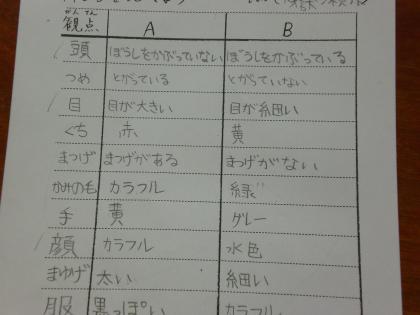 かんてん
観点 A B
頭 ぼうしをかぶっていない ぼうしをかぶっている
つめ とがっている とがっていない
目 目が大きい 目が細い
くち 赤 黄
まつげ まつげがある まつげがない
かみの毛 カラフル 緑
手 黄 グレー
顔 カラフル 水色
まゆげ 太い 細い
服 黒っぽい カラフル